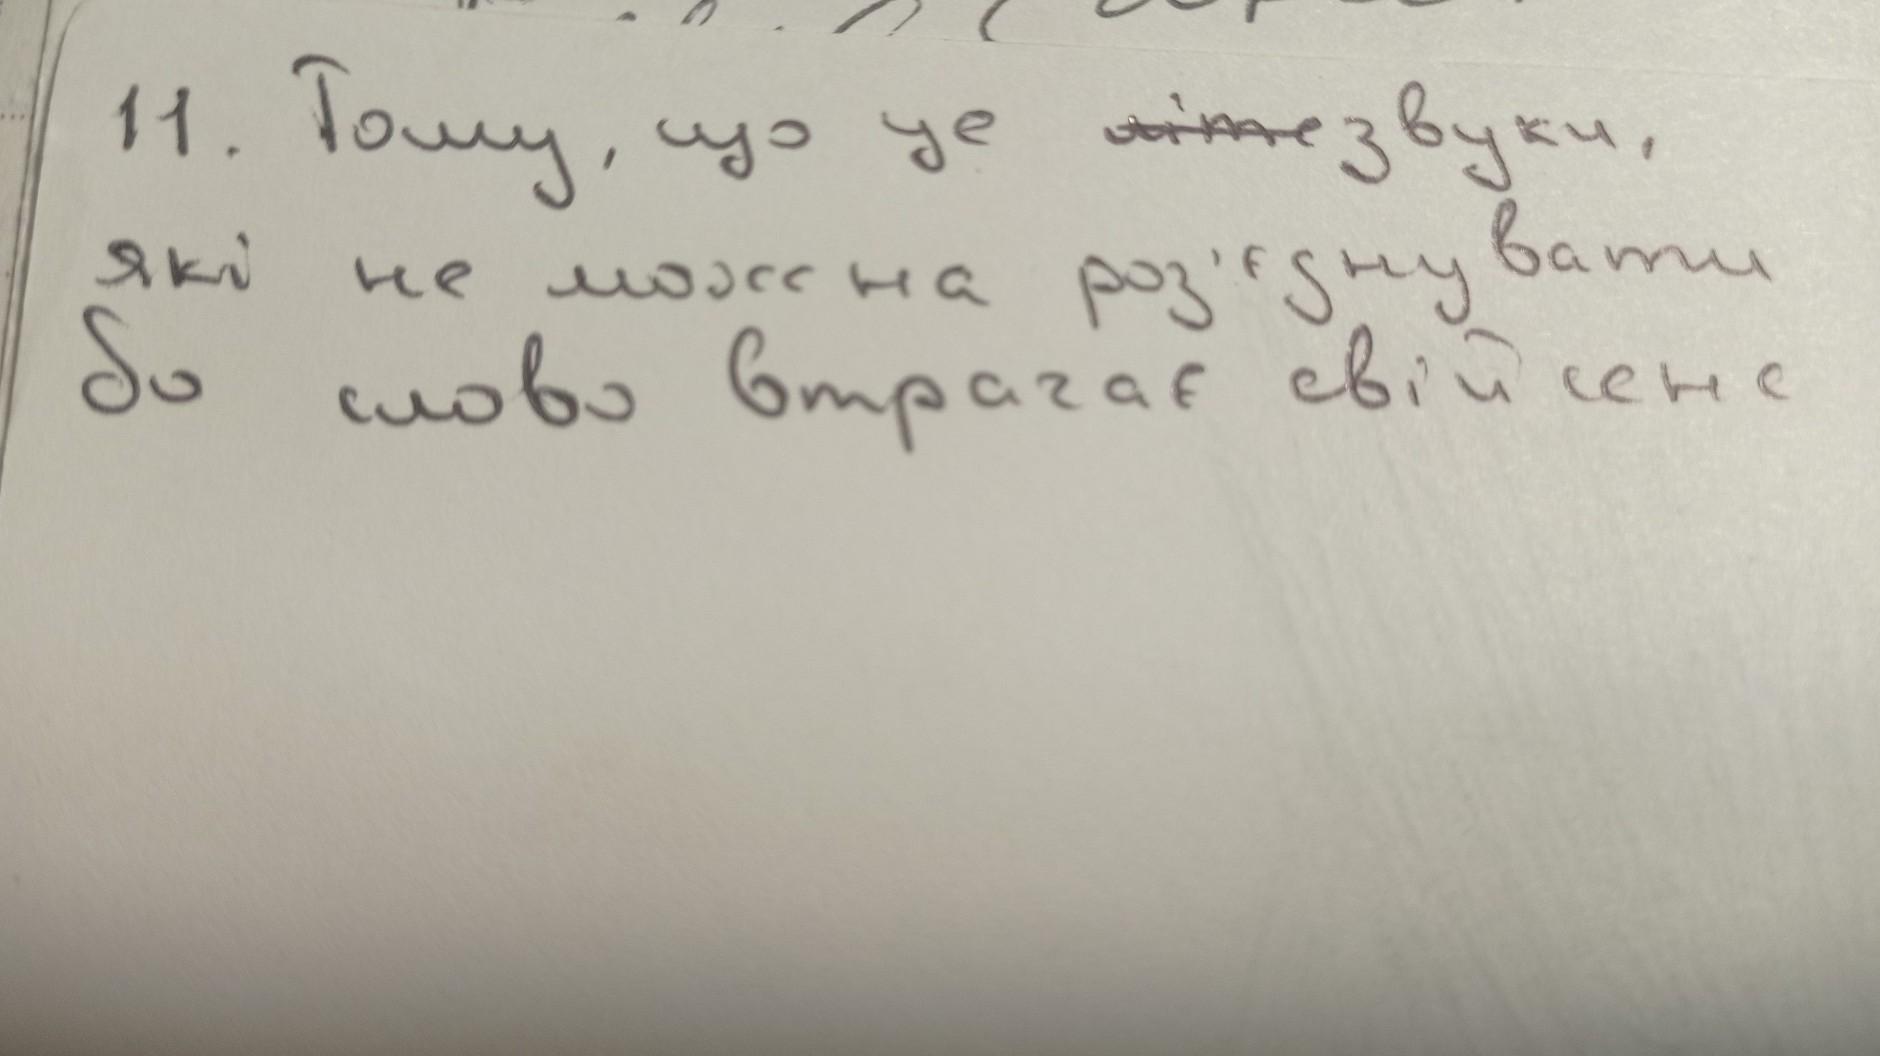 11. Тому, що це звуки,
які не можна роз'єднувати
бо слово втрачає свій сенс